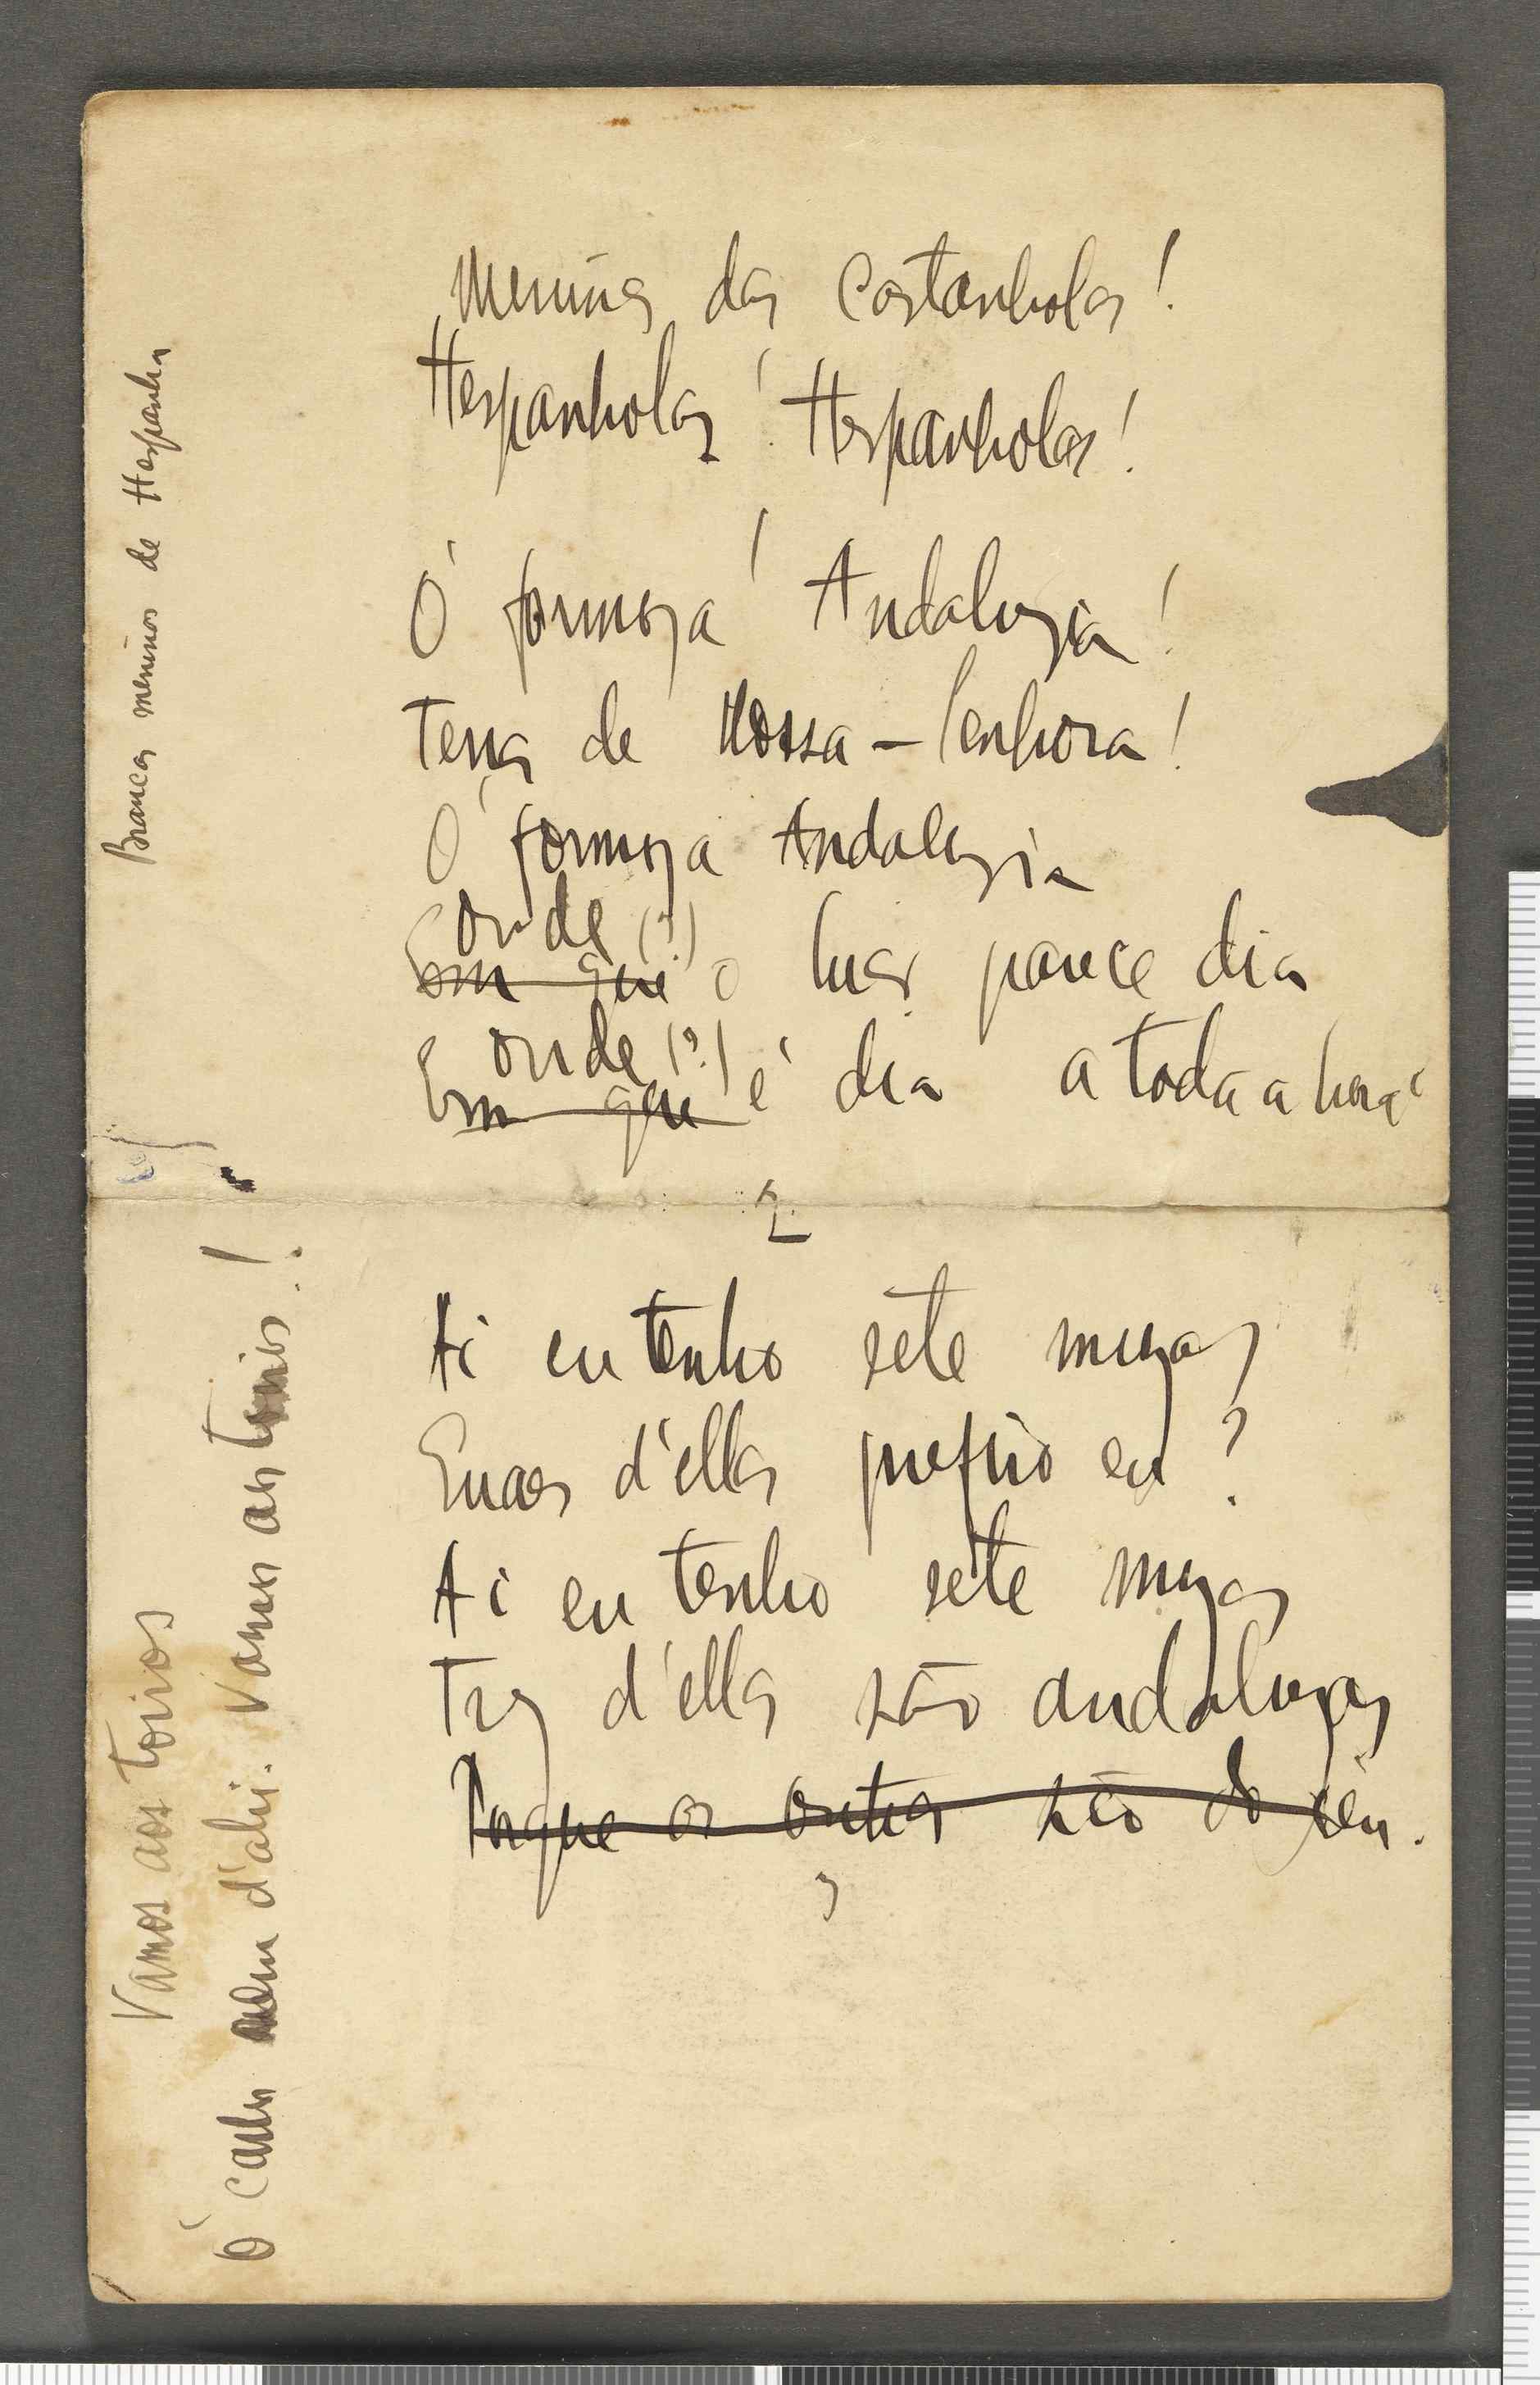 Meninas das Castanholas!
Hespanholas! Hespanholas!
Ó formoza! Andaluzia!
Terra de Nossa-Senhora!
Ó formoza Andaluzia
onde (?)
Em que o luar parece dia
onde (?)
Em que é dia a toda a hora!
2
Ai eu tenho sete muzas
Quaes d'ellas prefiro eu?
Ai eu tenho sete muzas
Trez d'ellas são andaluzas
Porque as outras são do céu.
Brancas meninas de Hespanha
Vamos aos toiros
Ó d'ahi. Vamos aos toiros!